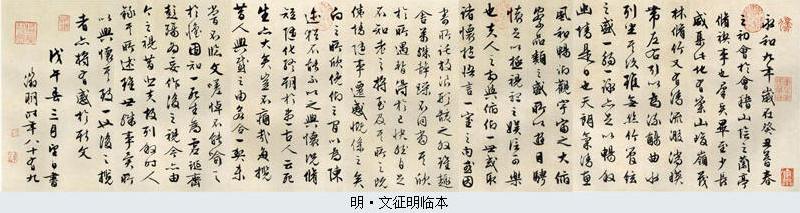 永和九年歲在癸丑暮春
之初會於會稽山陰之蘭亭
脩禊事也羣賢畢至少長
咸集此地有崇山峻嶺茂
林脩竹又有清流激湍映
帶左右引以為流觴曲水
列坐其次雖無絲竹管弦
之盛一觴一詠亦足以暢敘
幽情是日也天朗氣清惠
風和暢仰觀宇宙之大俯
察品類之盛所以遊目騁
懷足以極視聽之娛信可樂
也夫人之相與俯仰一世或取
諸懷抱悟言一室之內或因
寄所託放浪形骸之外雖趣
舍萬殊靜躁不同當其欣
於所遇暫得於己快然自足
不知老之將至及其所之既
倦情隨事遷感慨係之矣
向之所欣俛仰之間以為陳
迹猶不能不以之興懷況脩
短隨化終期於盡古人云死
生亦大矣豈不痛哉每攬
昔人興感之由若合一契未
嘗不臨文嗟悼不能喻之
於懷固知一死生為虛誕齊
彭殤為妄作後之視今亦由
今之視昔悲夫故列敘時人
錄其所述雖世殊事異所
以興懷其致一也後之攬
者亦將有感於斯文
戊午春三月望日書
徵明時年八十有九
明·文征明临本